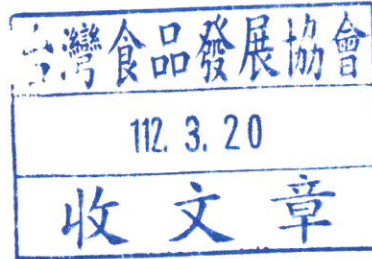 台灣食品發展協會
112. 3. 20
收文章